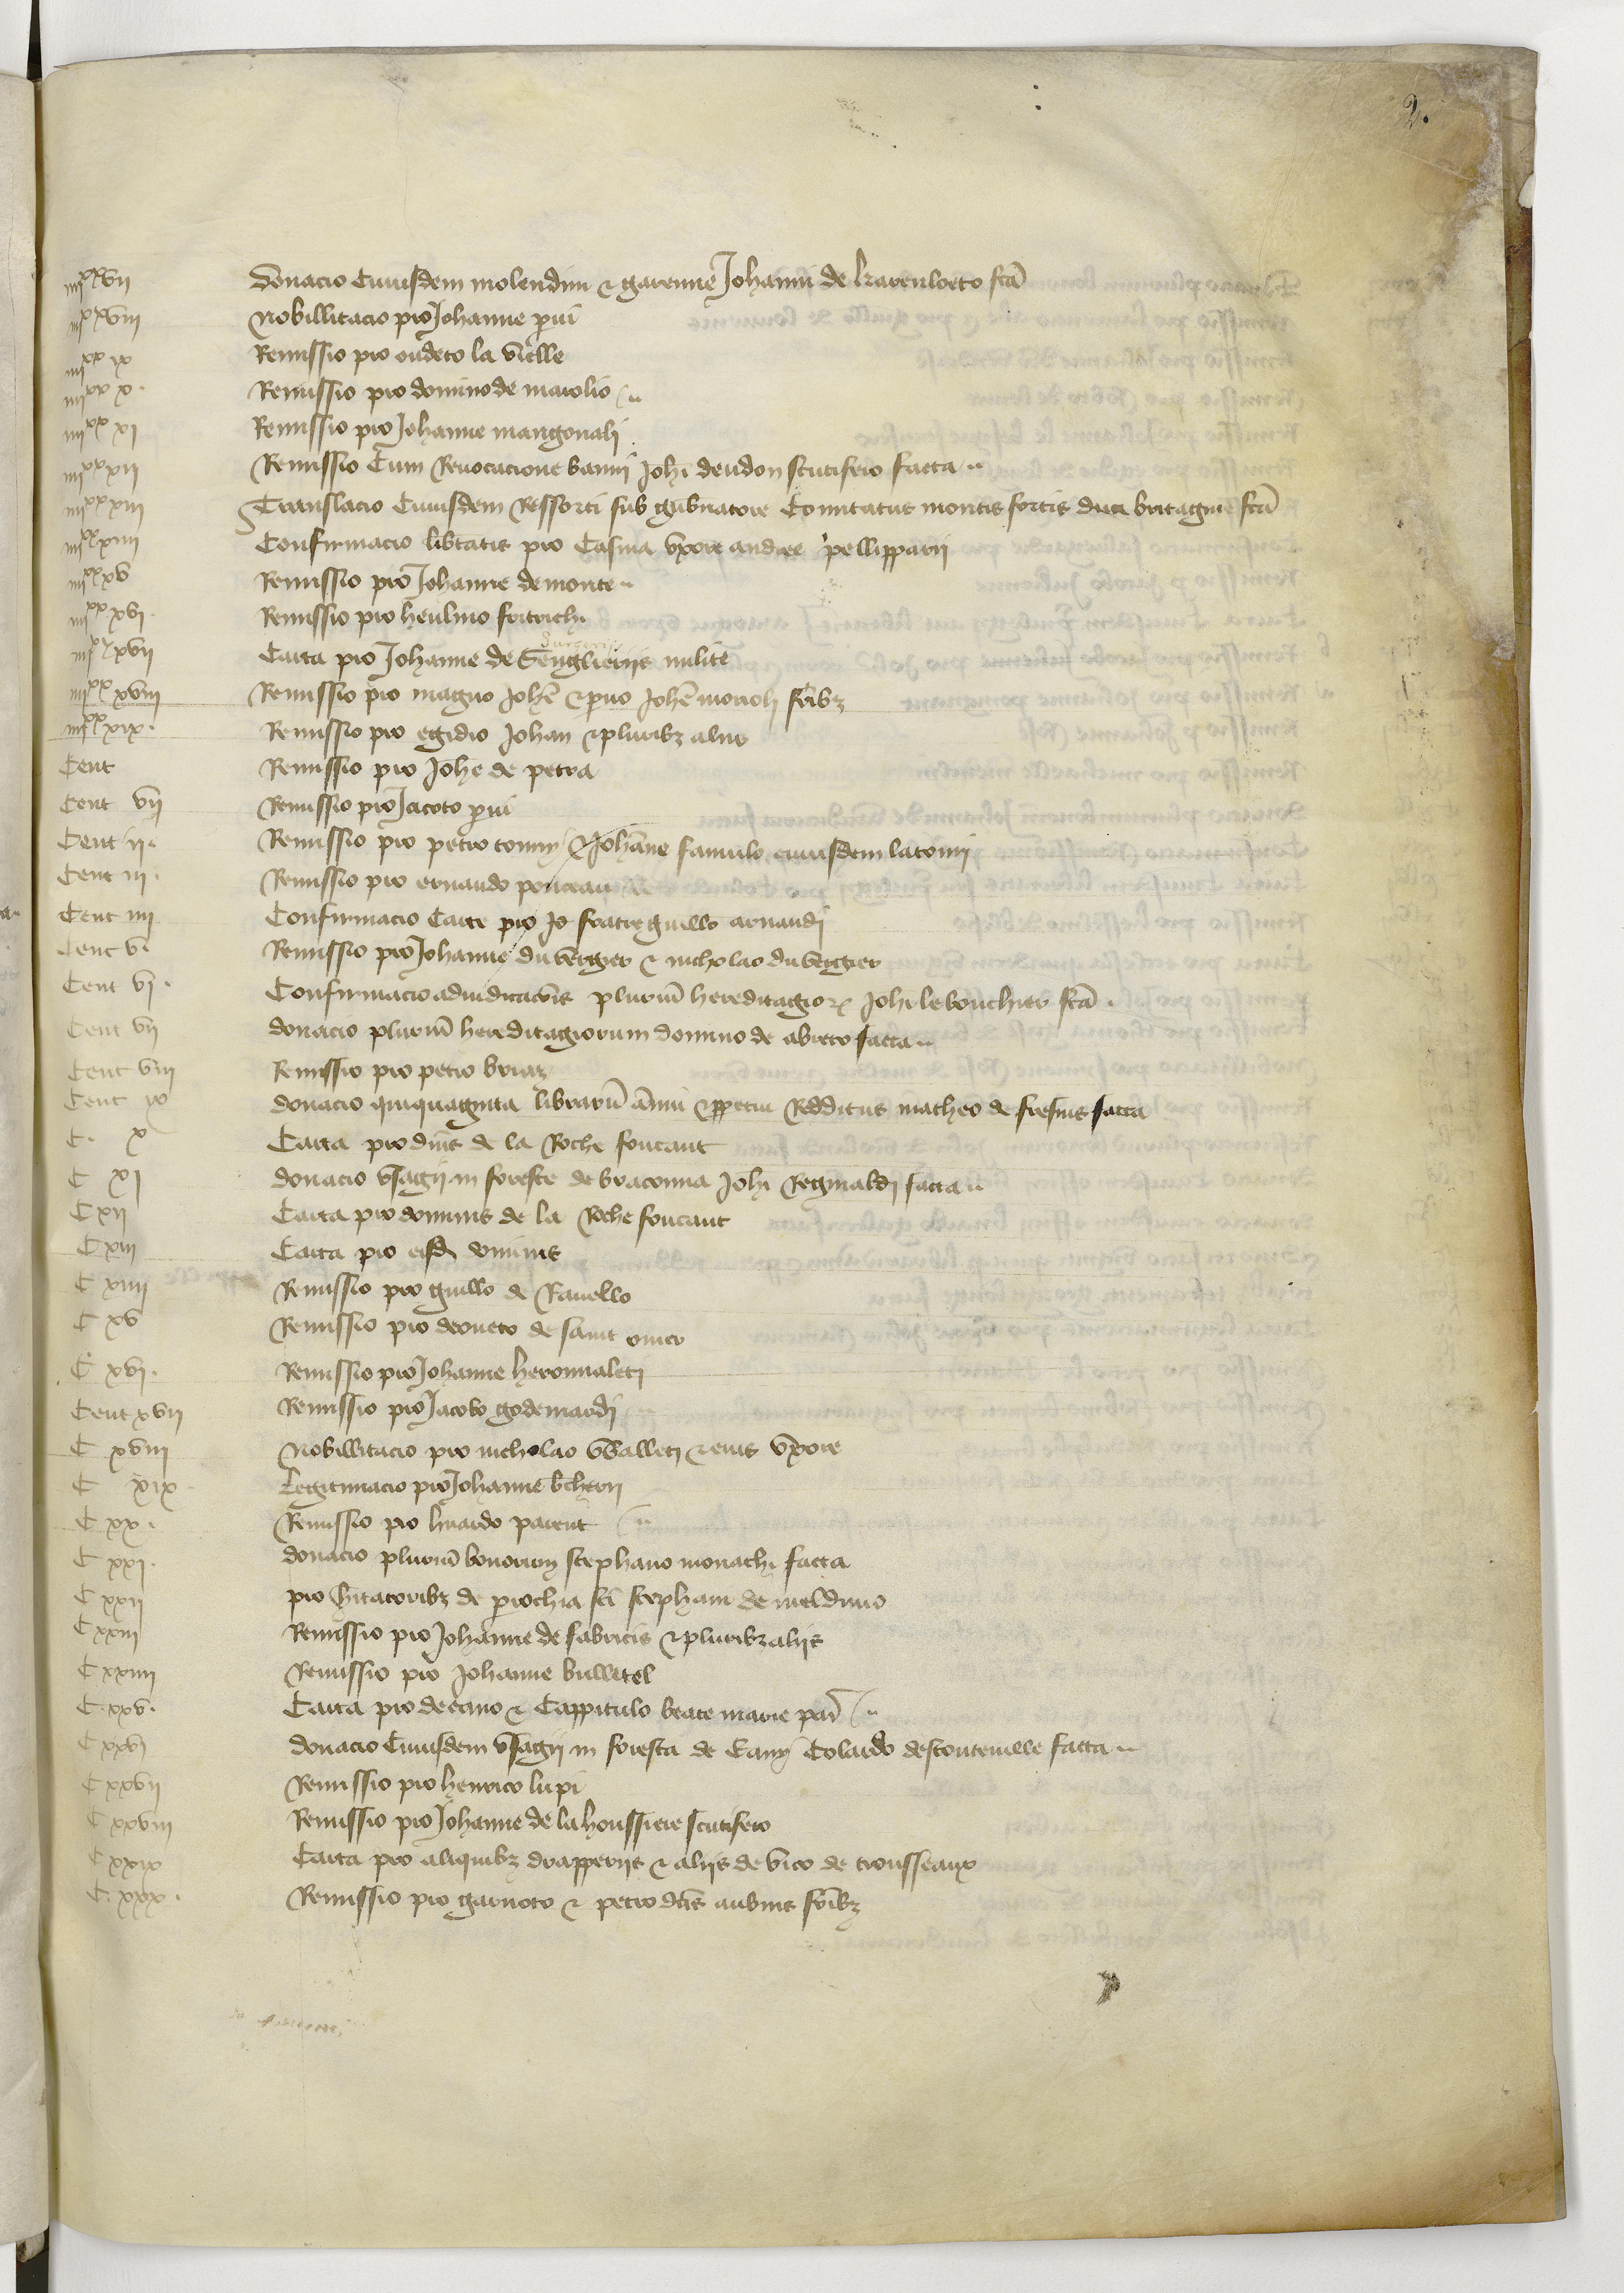 2.
iiijxx vii Donacio Cuiusdem molendini & garenne Johanni de fcā
iiijxx viii Nobillitacio pro Johanne pvi
iiijxx ix Remissio pro oudeto la vielle
iiijxx x. Remissio pro domino de marolio
iiijxx xi Remissio pro Johanne mangonali
iiijxx xii Remissio Cum Revocacione banni Johi deudon scutifero facta
iiijxx xiii Translacio Cuiusdem Ressorti sub gubnatore Comitatus montis fortis duci britagnie fcā
iiijxx xiiii Confirmacio libtatis pro Casina uxore andree pellipparii
iiijxx xv Remissio pro Johanne de monte
iiijxx xvi. Remissio pro
iiijxx xvii Carta pro Johanne de Senglieriis milite
iiijxx xviii Remissio pro magno Johē & pvo Johē fribz
iiijxx xix. Remissio pro egidio Johan & pluribz aliis
Cent Remissio pro Johe de petra
Cent vii Remissio pro Jacoto pvi
Cent ii. Remissio pro petro & Johanne famulo cuiusdem latomi
Cent iii. Remissio pro ernaudo
Cent iiii Confirmacio Carte pro Jo fratre guillo arnaudi
Cent v. Remissio pro Johanne du vergier & nicholao du vergier
Cent vi. Confirmacio adiudicacōis pluriū hereditagior Johi le bouchier fcā.
Cent vii donacio pluriū hereditagiorum domino de abreto facta
Cent viii Remissio pro petro
Cent ix donacio quiquaginta librarū ānui & ppetui Redditus matheo de fresnis facta
C. x Carta pro dnis de la Roche foucaut
C xi donacio usagii in foresta de braconna Johi Reginaldi facta
C xii Carta pro dominis de la Roche foucaut
C xiii Carta pro eisd dominis
C xiiii Remissio pro guillo de Ravello
C xv Remissio pro droueto de saint omer
C xvi. Remissio pro Johanne
Cent xvii Remissio pro Jacobo godemardi
C xviii Nobillitacio pro nicholao Walleti & eius uxore
C xix Legitimacio pro Johanne
C xx. Remissio pro linardo parent
C xxi. donacio pluriū bonorum stephano monachi facta
C xxii pro hitatoribz de prochia sci stephani de meldino
C xxiii Remissio pro Johanne de fabricis & pluribz aliis
C xxiiii Remissio pro Johanne bulletel
C xxv. Carta pro decano & Cappitulo beate marie par
C xxvi donacio Cuiusdem usagii in foresta de Cany Colardo destouteville facta
C xxvii Remissio pro henrico lupi
C xxviii Remissio pro Johanne de la houssiere scutifero
C xxix Carta pro aliquibz drapperiis & aliis de vico de trousseaux
C. xxx. Remissio pro garnoto & petro dcis aubins fribz